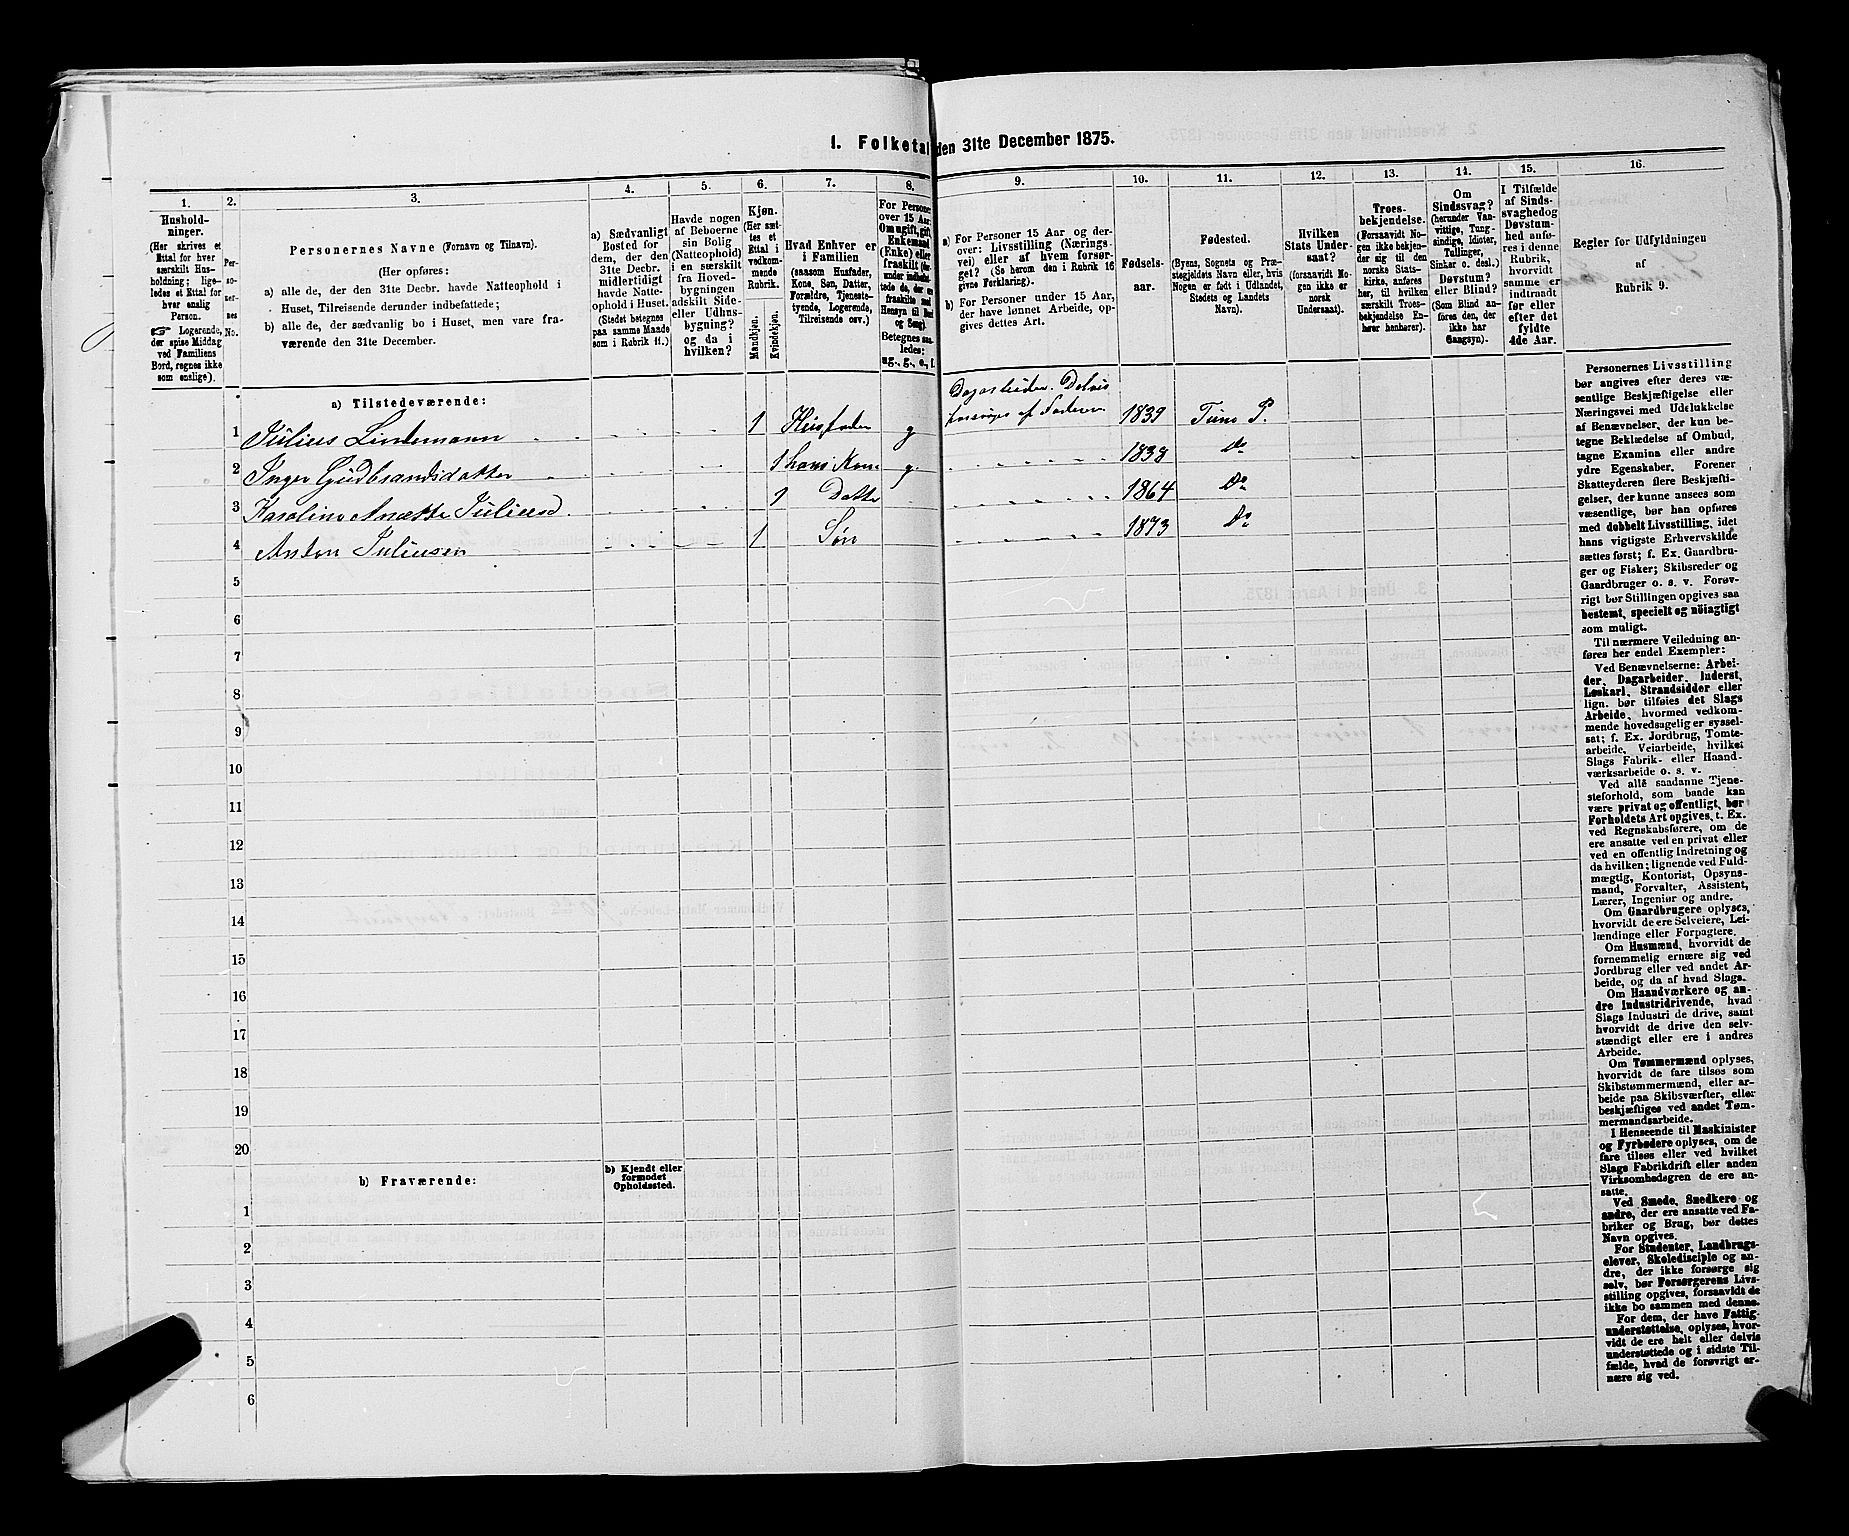 1. Folketal den 31te December 1875.
1.
Hushold-
ninger.
(Her skrives et
Ettal for hver
særskilt Hus-
holdning; lige-
ledes et Ettal for
hver enslig
Person.
☞ Logerende,
der spise Middag
ved Familiens
Bord, regnes ikke
som enslige).
2.
Per-
so-
ner-
nes
No.
3.
Personernes Navne (Fornavn og Tilnavn).
(Her opføres:
a) alle de, der den 31te Decbr. havde Natteophold i
Huset, Tilreisende derunder indbefattede;
b) alle de, der sædvanlig bo i Huset, men vare fra-
værende den 31te December.
4.
a) Sædvanligt
Bosted for
dem, der den
31te Decbr.
midlertidigt
havde Natte-
ophold i Huset.
(Stedet betegnes
paa samme Maade
som i Rubrik 11.)
5.
Havde nogen
af Beboerne
sin Bolig
(Natteophold)
i en særskilt
fra Hoved-
bygningen
adskilt Side-
eller Udhus-
bygning?
og da i
hvilken?
6.
Kjøn.
(Her sæt-
tes et
Ettal i
vedkom-
mende
Rubrik.
Mandkjøn.
Kvindekjøn.
7.
Hvad Enhver er
i Familien
(saasom Husfader,
Kone, Søn, Datter,
Forældre, Tjeneste-
tyende, Logerende,
Tilreisende osv.)
8.
For Personer
over 15 Aar:
Om ugift, gift,
Enkemand
(Enke) eller
fraskilt
Betegnes saa-
ledes:
ug., g., e., f.
9.
a) For Personer 15 Aar og der-
over: Livsstilling (Nærings-
vei) eller af hvem forsør-
get? (Se herom den i Rubrik 16
givne Forklaring).
b) For Personer under 15 Aar,
der have lønnet Arbeide, op-
gives dettes Art.
10.
Fødsels-
aar.
11.
Fødested.
(Byens, Sognets og Præ-
stegjeldets Navn eller, hvis
Nogen er født i Udlandet,
Stedets og Landets
Navn).
12.
Hvilken
Stats Under-
saat?
(forsaavidt No-
gen ikke er
norsk
Undersaat).
13.
Troes-
bekjendelse.
(Forsaavidt No-
gen ikke bekjen-
der sig til den
norske Stats-
kirke, anføres
her, til hvilken
særskilt Troes-
bekjendelse En-
hver henhører).
14.
Om
Sindssvag?
(herunder Van-
vittige, Tung-
sindige, Idioter,
Tullinger,
Sinker o. desl.)
Døvstum?
eller Blind?
(Som Blind an-
føres den, der
ikke har
Gangsyn).
15.
I Tilfælde
af Sinds-
svaghed og
Døvstum-
hed anfø-
res i denne
Rubrik,
hvorvidt
samme er
indtraadt
før eller
efter det
fyldte
4de Aar.
16.
Regler for Udfyldningen
af
Rubrik 9.
a) Tilstedeværende:
1 Julius Lindemann 1 Husfader g Dagarbeider. Delvis forsørges af Faderen 1839 Tune P.
2 Inger Gudbrandsdatter 1 hans Kone g. 1838 Do
3 Karoline Anætte Juliusd. 1 Datter 1864 Do
4 Anton Juliusen 1 Søn 1873 Do
5
6
7
8
9
10
11
12
13
14
15
16
17
18
19
20
b) Fraværende:
b) Kjendt eller
formodet
Opholdssted.
1
2
3
4
5
6
Personernes Livsstilling
bør angives efter deres væ-
sentlige Beskjæftigelse eller
Næringsvei med Udelukkelse
af Benævnelser, der kun be-
tegne Beklædelse af Ombud,
tagne Examina eller andre
ydre Egenskaber. Forener
Skatteyderen flere Beskjæfti-
gelser, der kunne ansees som
væsentlige, bør han opføres
med dobbelt Livsstilling, idet
hans vigtigste Erhvervskilde
sættes først; f. Ex. Gaardbru-
ger og Fisker; Skibsreder og
Gaardbruger o. s. v. Forøv-
rigt bør Stillingen opgives saa
bestemt, specielt og nöiagtigt
som muligt.
Til nærmere Veiledning an-
føres her endel Exempler:
Ved Benævnelserne: Arbei-
der, Dagarbeider, Inderst,
Løskarl, Strandsidder eller
lign. bør tilføies det Slags
Arbeide, hvormed vedkom-
mende hovedsagelig er syssel-
sat; f. Ex. Jordbrug, Tomte-
arbeide, Veiarbeide, hvilket
Slags Fabrik- eller Haand-
værksarbeide o. s. v.
Ved alle saadanne Tjene-
steforhold, som baade kan
være privat og offentligt, bør
Forholdets Art opgives, t. Ex.
ved Regnskabsførere, om de
ere ansatte ved en privat eller
ved en offentlig Indretning og
da hvilken; lignende ved Fuld-
mægtig, Kontorist, Opsyns-
mand, Forvalter, Assistent,
Lærer, Ingeniør og andre.
Om Gaardbrugere oplyses,
hvorvidt de ere Selveiere, Lei-
lændinge eller Forpagtere.
Om Husmænd, hvorvidt de
fornemmelig ernære sig ved
Jordbrug eller ved andet Ar-
beide, og da af hvad Slags.
Om Haandværkere og an-
dre Industridrivende, hvad
Slags Industri de drive, samt
hvorvidt de drive den selv-
stændigt eller ere i andres
Arbeide.
Om Tømmermænd oplyses,
hvorvidt de fare tilsøs som
Skibstømmermænd, eller ar-
beide paa Skibsværfter, eller
beskjæftiges ved andet Tøm-
mermandsarbeide.
I Henseende til Maskinister
og Fyrbødere oplyses, om de
fare tilsøs eller ved hvilket
Slags Fabrikdrift eller anden
Virksomhedsgren de ere an-
satte.
Ved Smede, Snedkere og
andre, der ere ansatte ved Fa-
briker og Brug, bør dettes
Navn opgives.
For Studenter, Landbrugs-
elever, Skoledisciple og an-
dre, der ikke forsørge sig
selv, bør Forsørgerens Livs-
stilling opgives, forsaavidt de
ikke bo sammen med denne.
For dem, der have Fattig-
understøttelse, oplyses, hvor-
vidt de ere helt eller delvis
understøttede og i sidste Til-
fælde, hvad de forøvrigt er-
nære sig ved.